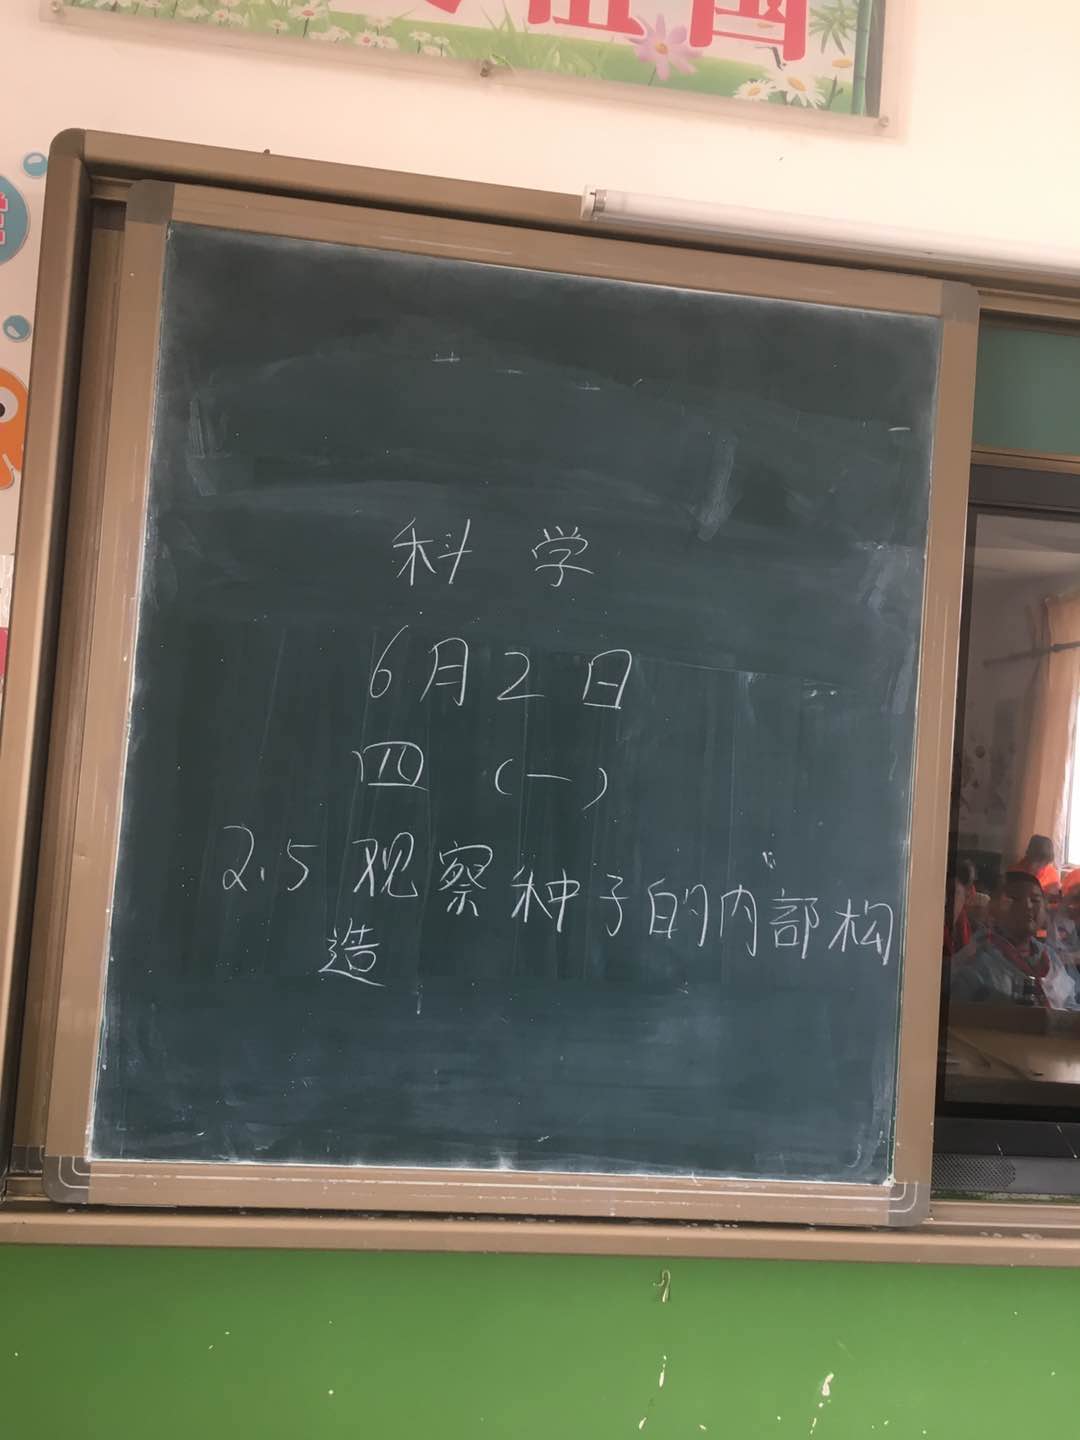 祖国
科学
6月2日
四（一）
2.5 观察种子的内部构
造